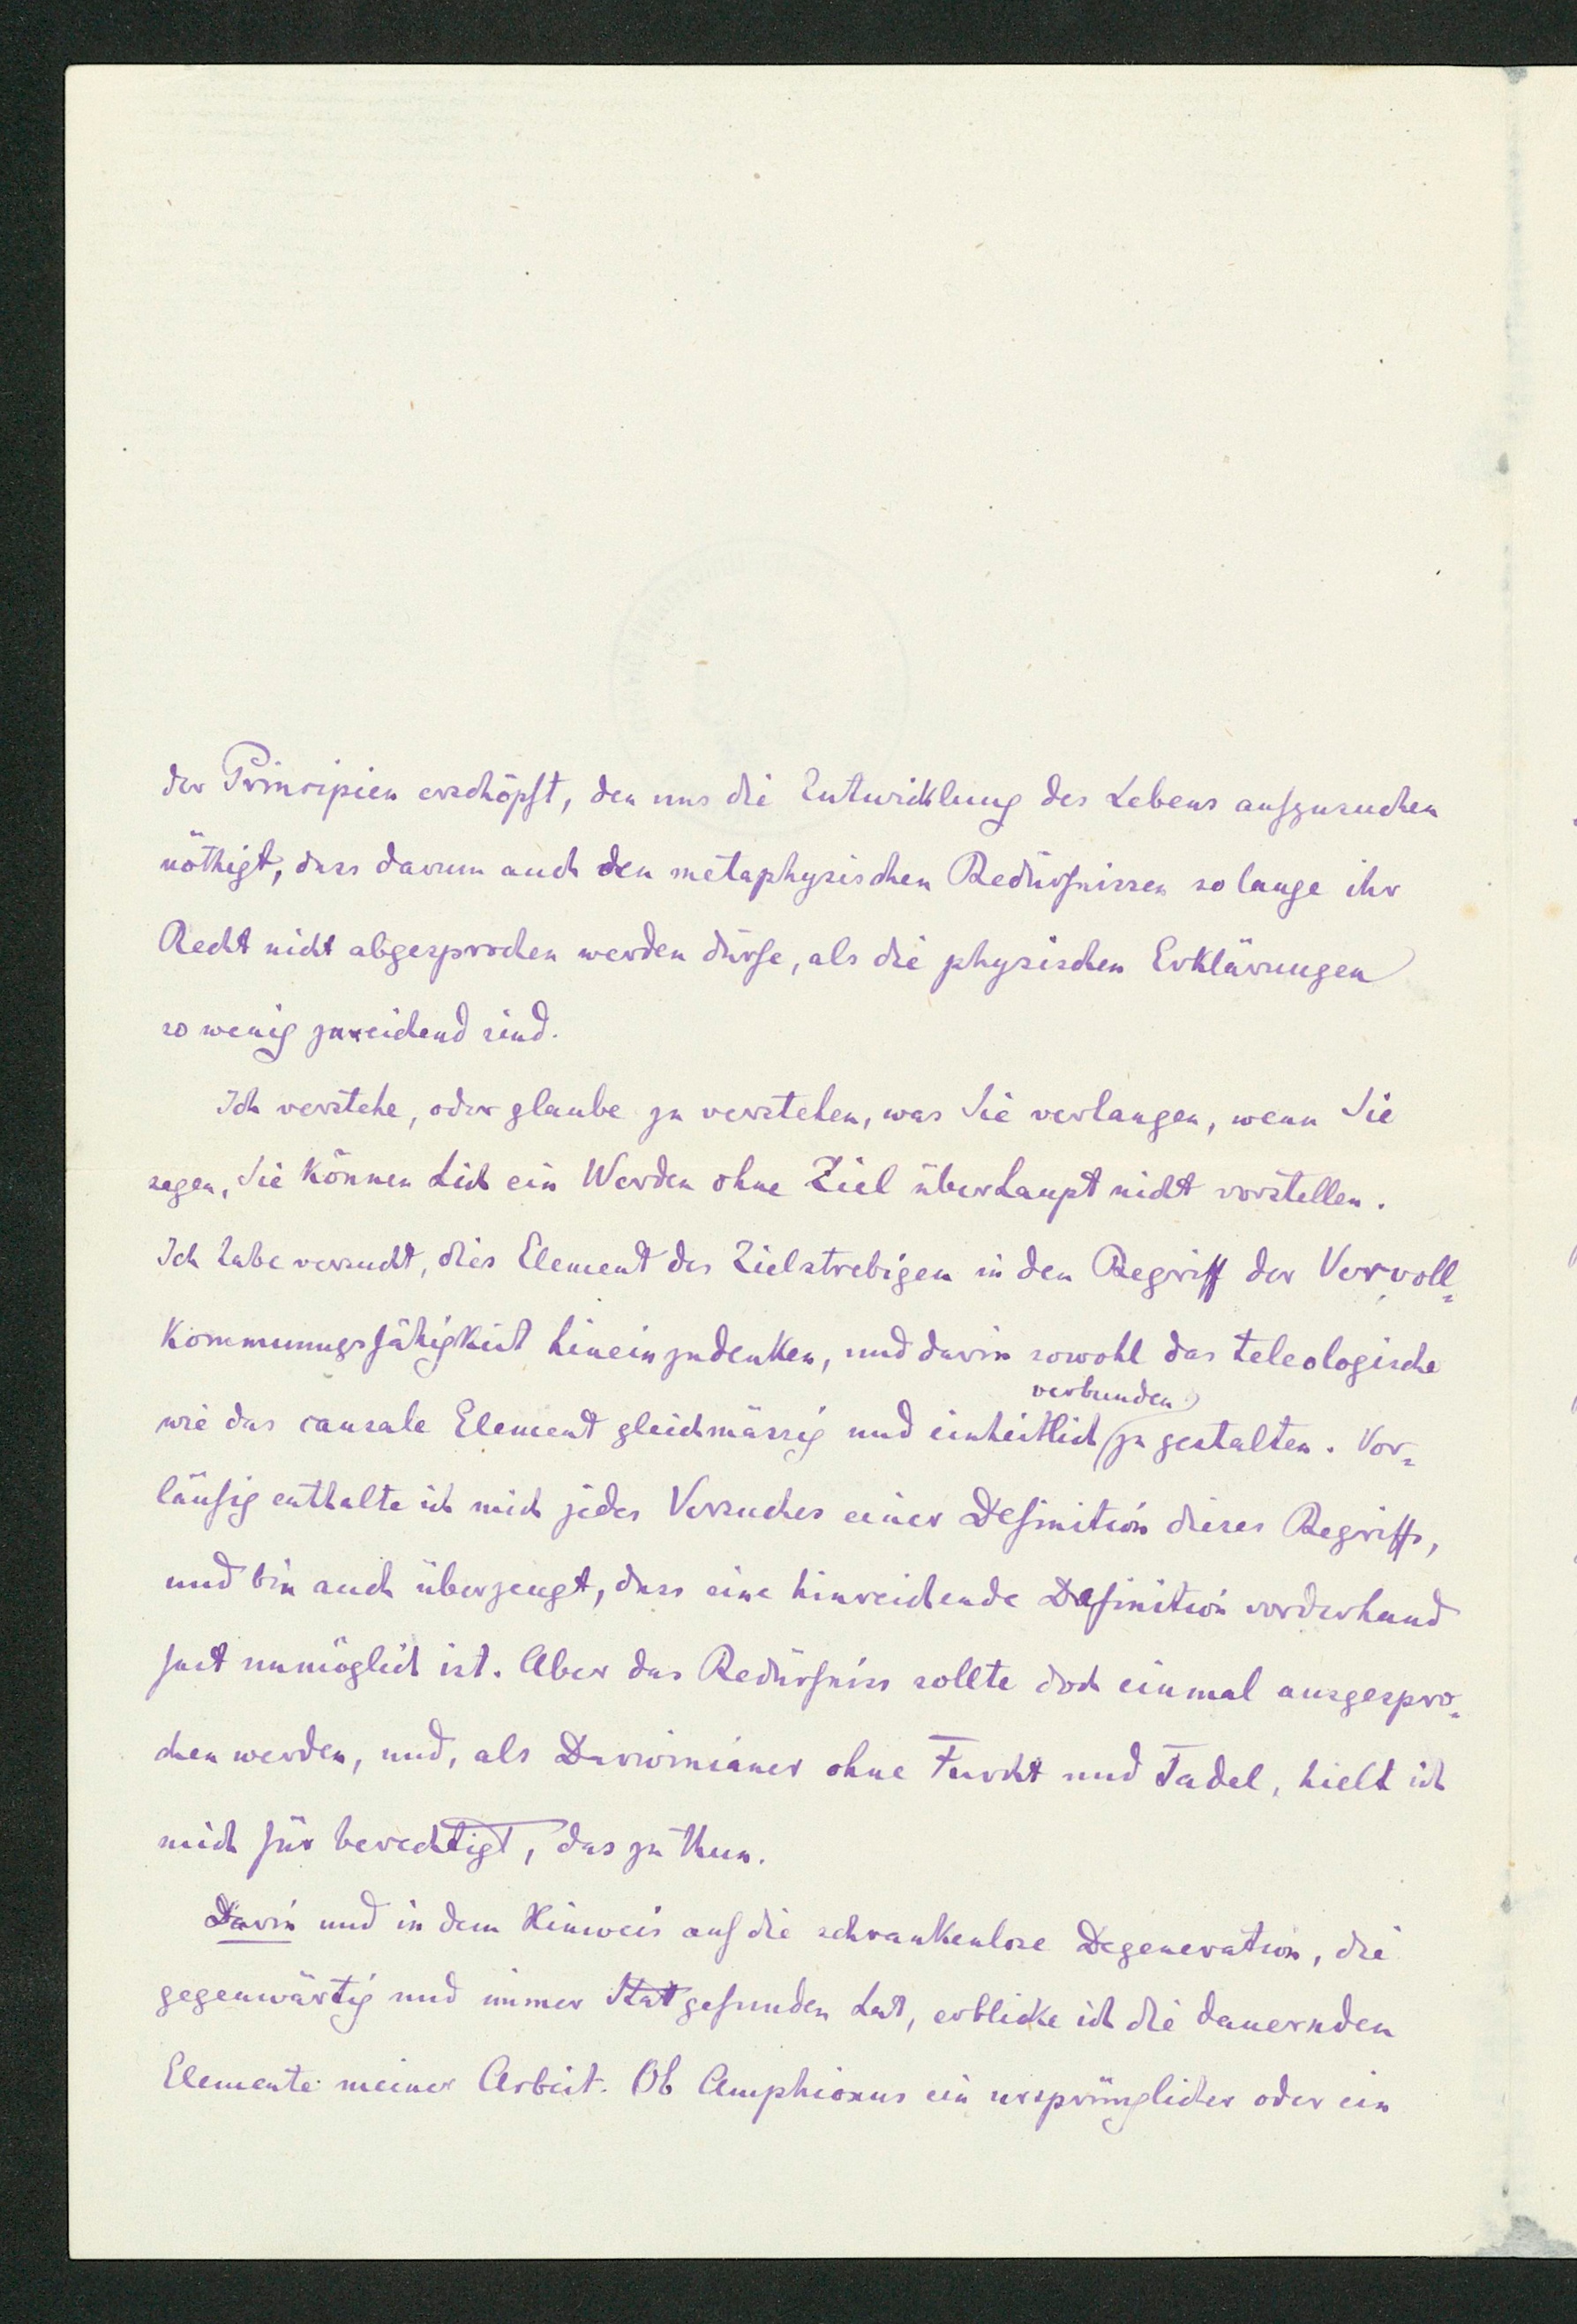 der Principien erschöpft, den uns die Entwicklung des Lebens aufzusuchen
nöthigt, dass darum auch den metaphysischen Bedürfnissen so lange ihr
Recht nicht abgesprochen werden dürfe, als die physischen Erklärungen
so wenig zureichend sind.
Ich verstehe, oder glaube zu verstehen, was Sie verlangen, wenn Sie
sagen, Sie können Sich ein Werden ohne Ziel überhaupt nicht vorstellen.
Ich habe versucht, dies Element des Zielstrebigen in den Begriff der Vervoll-
kommnungsfähigkeit hineinzudenken, und darin sowohl das teleologische
wie das causale Element gleichmässig und einheitlich verbunden zu gestalten. Vor-
läufig enthalte ich mich jedes Versuches einer Definition dieses Begriffs,
und bin auch überzeugt, dass eine hinreichende Definition vorderhand
fast unmöglich ist. Aber das Bedürfniss sollte doch einmal ausgespro-
chen werden, und, als Darwinianer ohne Furcht und Tadel, hielt ich
mich für berechtigt, das zu thun.
Darin und in dem Hinweis auf die schrankenlose Degeneration, die
gegenwärtig und immer Statt gefunden hat, erblicke ich die dauernden
Elemente meiner Arbeit. Ob Amphioxus ein ursprünglicher oder ein